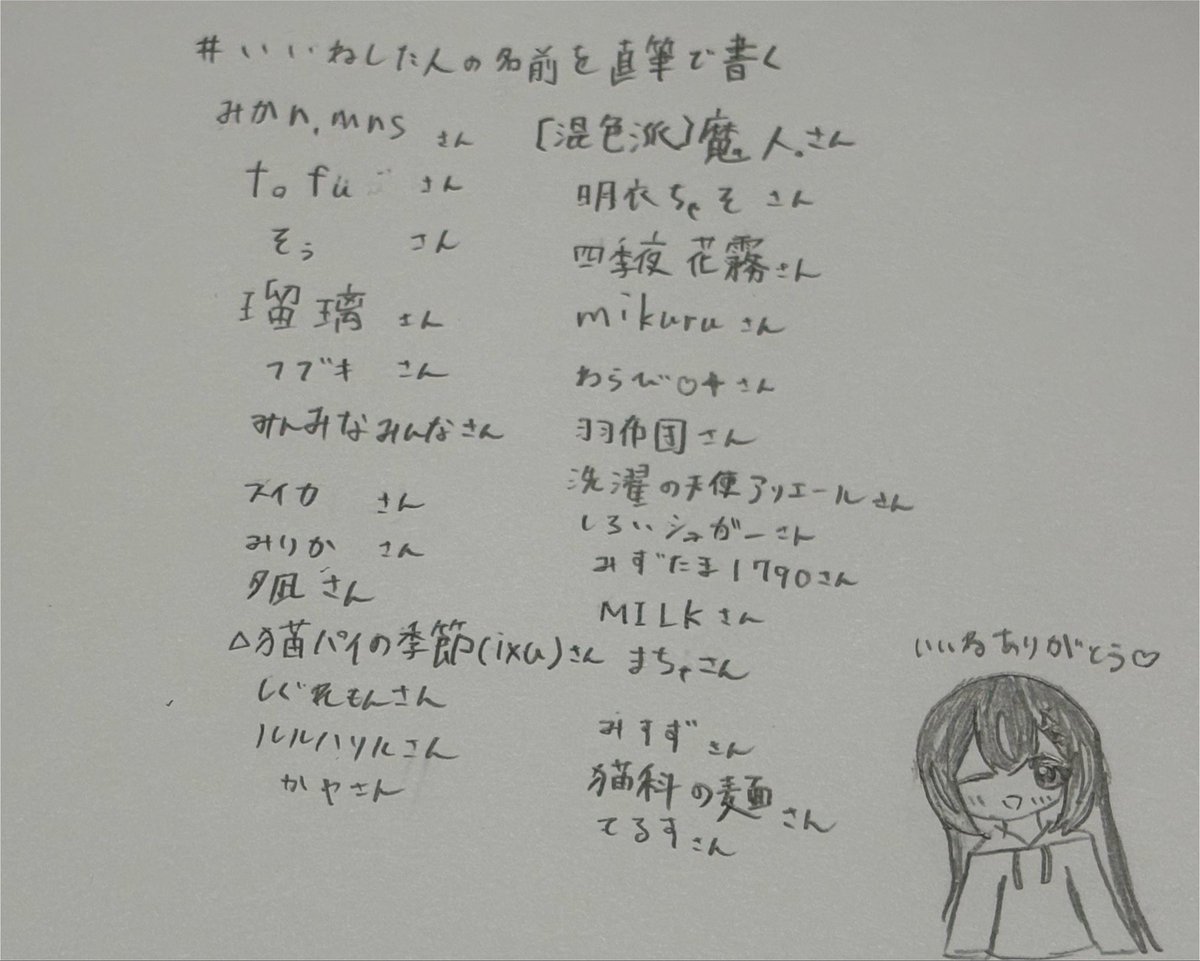 #いいねした人の名前を直筆で書く
みかn.mns さん
tofu さん
そぅ さん
瑠璃 さん
フブキ さん
みんみなみんなさん
スイカ さん
みりか さん
夕凪さん
△猫パイの季節(ixu)さん
しぐれもんさん
ルルハリルさん
かやさん
[混色派]魔。人。さん
明衣ちゃそ さん
四季夜 花霧さん
mikuru さん
わらび♡ さん
羽布団さん
洗濯の天使アリエールさん
しろいシュガーさん
みずたま1790さん
MILKさん
まちゃさん
みすず さん
猫科の麺 さん
てるすさん
いいねありがとう♡